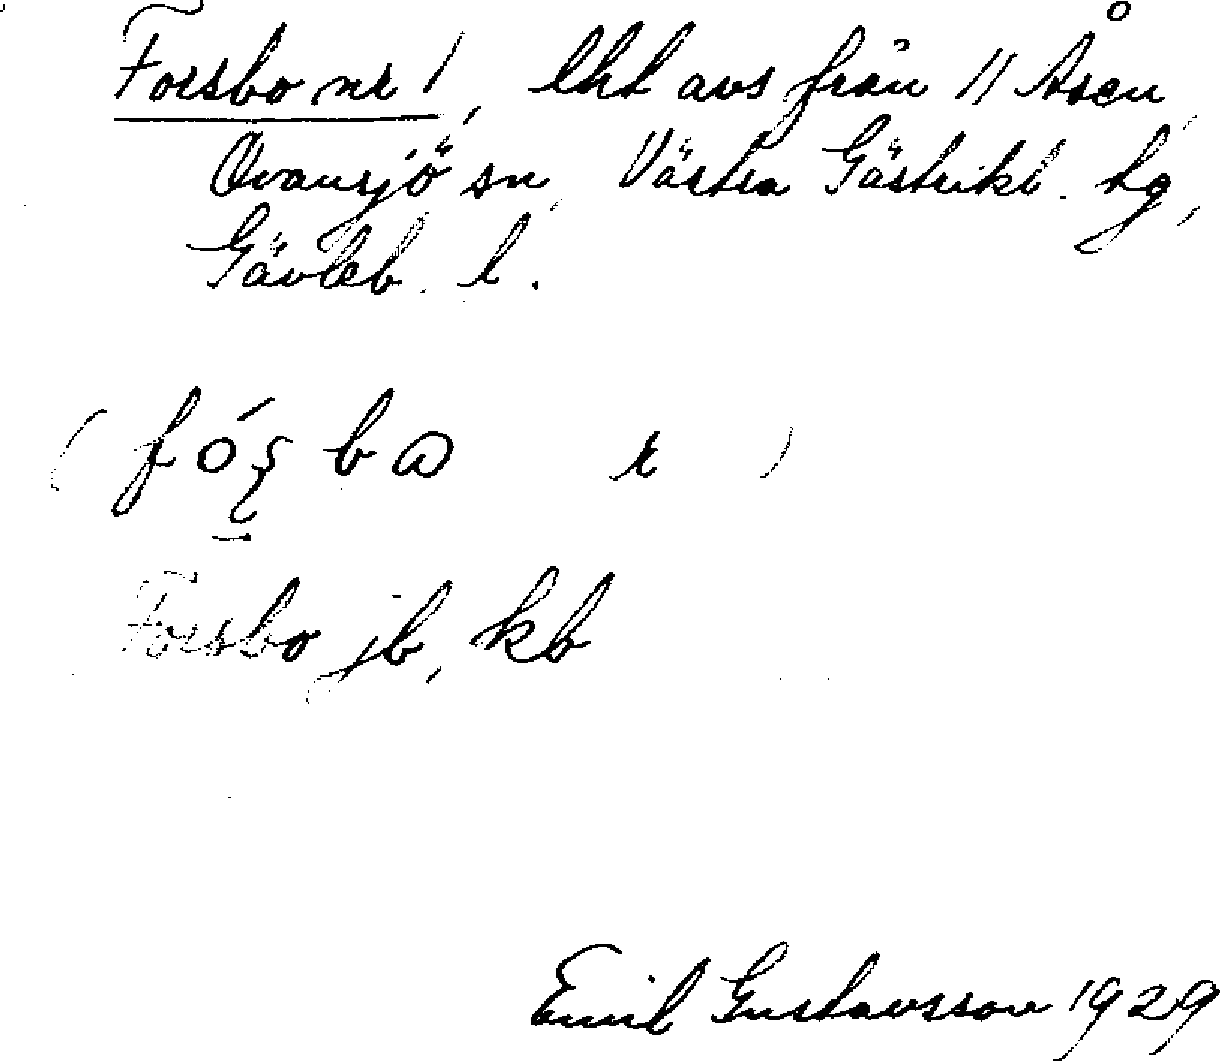 Forsbo nr 1, lht avs från 11 Åsen,
Ovansjö sn, Västra Gästrikl. tg,
Gävleb. l.
(fó̱ʂba r)
Forsbo jb, kb
Emil Gustavsson 1929